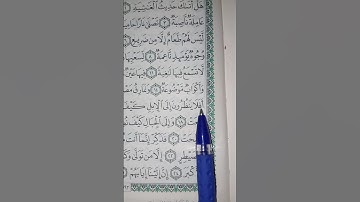 هَلْ أَتَىٰكَ حَدِيثُ ٱلْغَٰشِيَةِ ۝١
عَامِلَةٌ نَّاصِبَةٌ ۝٣ تَصْلَىٰ نَارًا
لَّيْسَ لَهُمْ طَعَامٌ إِلَّا مِن ضَرِيعٍ ۝٦
وُجُوهٌ يَوْمَئِذٍ نَّاعِمَةٌ ۝٨ لِّسَعْيِهَا
لَّا تَسْمَعُ فِيهَا لَٰغِيَةً ۝١١ فِيهَا عَيْنٌ
وَأَكْوَابٌ مَّوْضُوعَةٌ ۝١٤ وَنَمَارِقُ
أَفَلَا يَنظُرُونَ إِلَى ٱلْإِبِلِ كَيْفَ
۝١٨ وَإِلَى ٱلْجِبَالِ كَيْفَ
۝٢٠ فَذَكِّرْ إِنَّمَآ أَنتَ
۝٢٢ إِلَّا مَن تَوَلَّىٰ
۝٢٤ إِنَّ إِلَيْنَآ إِيَابَهُمْ ۝٢٥